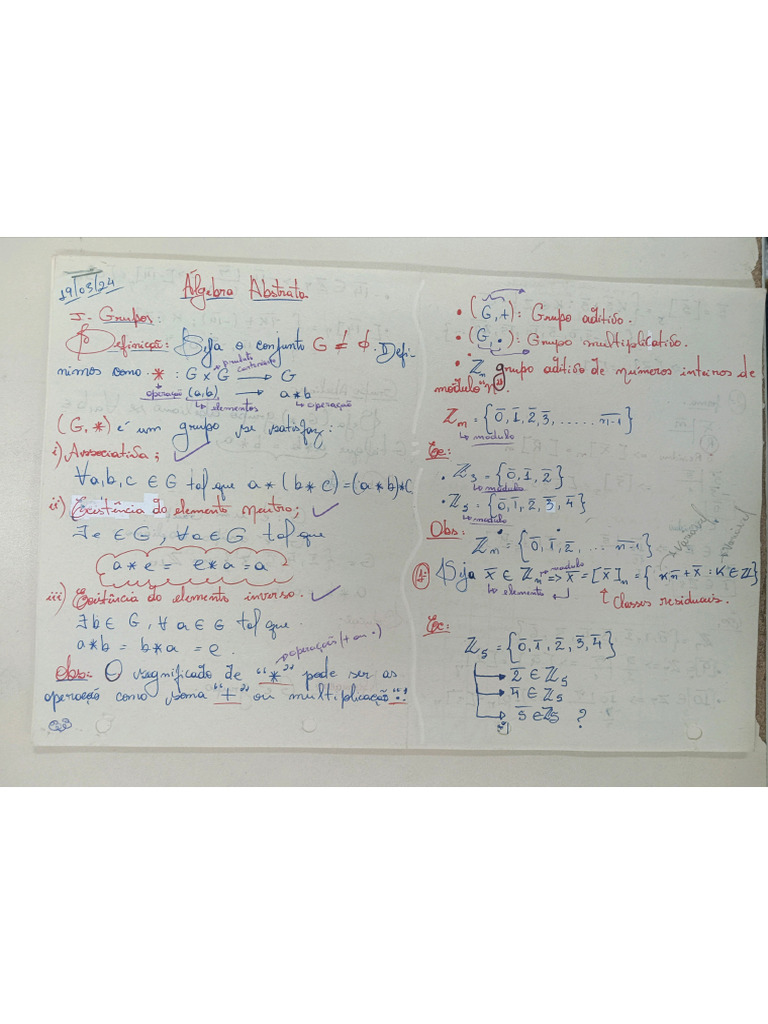 19/03/24
Álgebra Abstrata
I- Grupos:
Definição: Seja o conjunto G ≠ ∅. Defi-
nimos como * : G × G → G
produto cartesiano
operação (a,b) → a*b
↳ elementos ↳ operação
(G, *) é um grupo se satisfaz:
i) Associativa; ✓
∀a,b,c ∈ G tal que a*(b*c)=(a*b)*c
ii) Existência do elemento neutro; ✓
∃e ∈ G, ∀a ∈ G tal que
a*e = e*a = a
iii) Existência do elemento inverso. ✓
∃b ∈ G, ∀a ∈ G tal que
a*b = b*a = e.
→ operação (+ ou ·)
Obs: O significado de "*" pode ser as
operação como soma "+" ou multiplicação"·"!
• (G,+): Grupo aditivo.
• (G,•): Grupo multiplicativo.
• ℤn grupo aditivo de números inteiros de
módulo "n".
ℤn = {0̄, 1̄, 2̄, 3̄, ..... n-1}
↳ modulo
Ex:
• ℤ3 = {0̄, 1̄, 2̄}
↳ modulo
• ℤ5 = {0̄, 1̄, 2̄, 3̄, 4̄}
↳ modulo
Obs:
ℤn = {0̄, 1̄, 2̄, ... n-1}
1ª Seja x̄ ∈ ℤn => x̄ = [x]n = {kn+x : K ∈ ℤ}
modulo
↳ elemento
↑ Classes residuais.
Variável
Variável
Ex:
ℤ5 = {0̄, 1̄, 2̄, 3̄, 4̄}
→ 2̄ ∈ ℤ5
→ 4̄ ∈ ℤ5
→ 5̄ ∈ ℤ5 ?